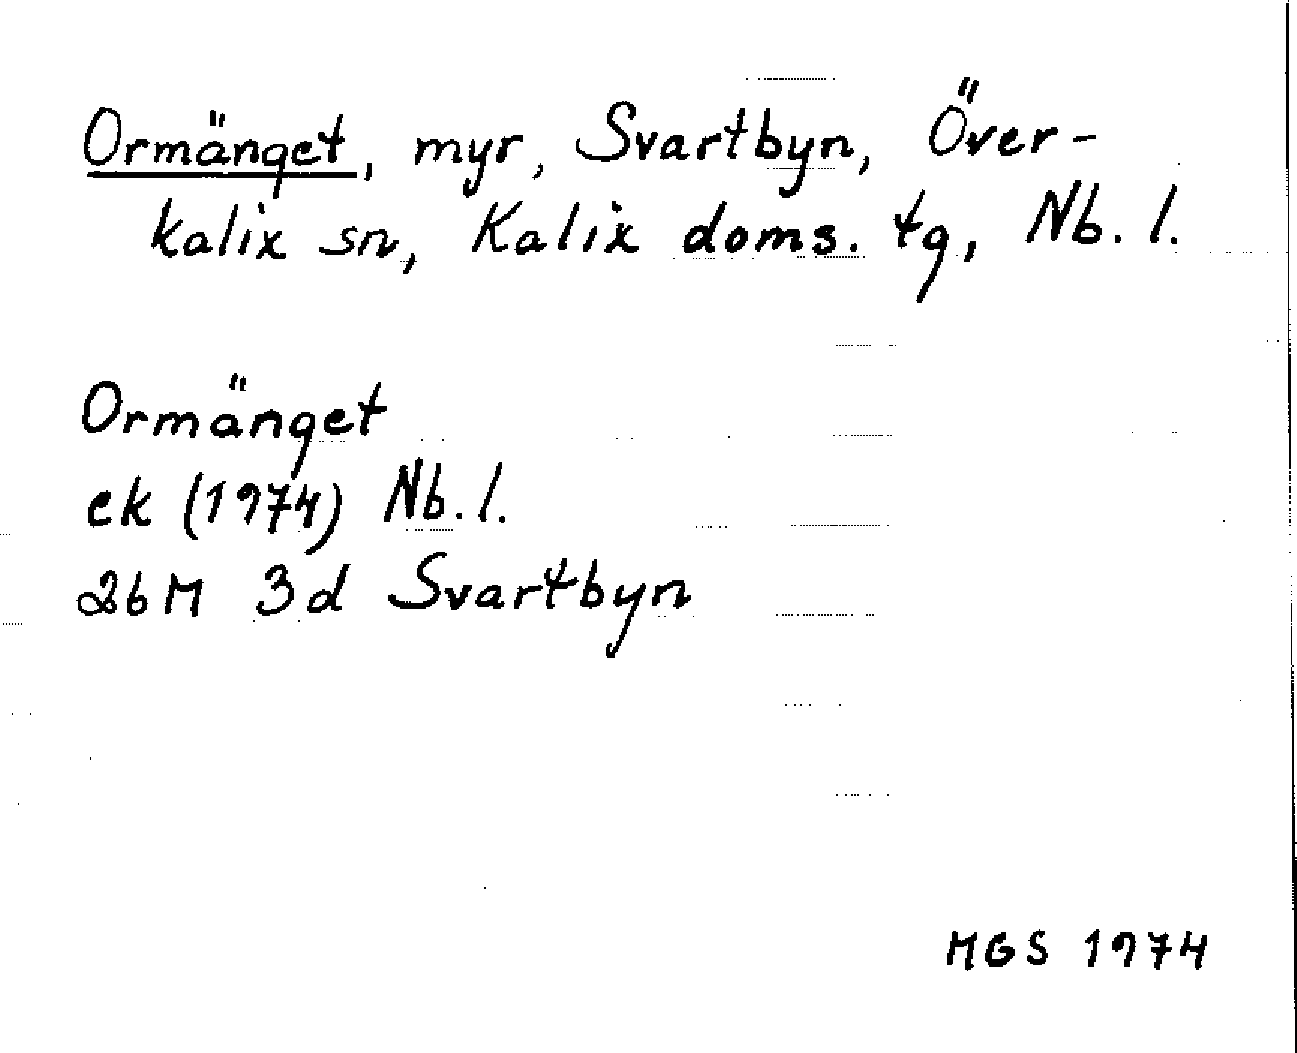 Ormänget, myr, Svartbyn, Över-
kalix sn, Kalix doms. tg, Nb. l.
Ormänget
ek (1974) Nb. l.
26M 3d Svartbyn
MGS 1974